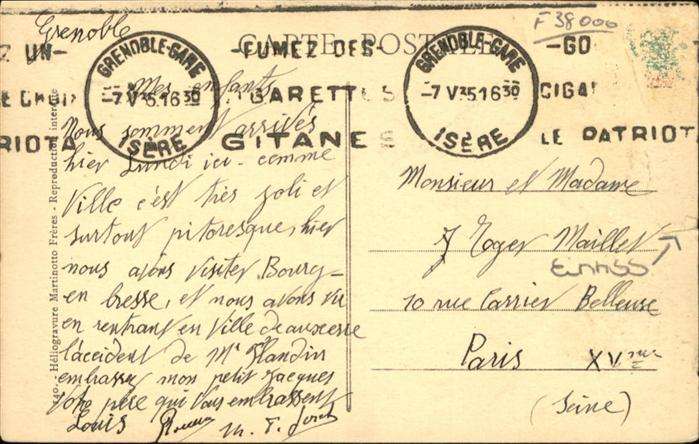 Grenoble
F 38000
CARTE POSTALE
Z UN-
-FUMEZ DES-
-GO
GRENOBLE-GARE
-7 V 35.16 30
ISÈRE
GARETTES
GITANES
GRENOBLE-GARE
-7 V 35.16 30
ISÈRE
CIGA
LE PATRIOT
RIOTA
Mes enfants
Nous sommes arrivés
hier Lundi ici - comme
Ville c'est très joli et
surtout pitoresque, hier
nous avons visiter Bourg-
en bresse, et nous avons vu
en rentrant en Ville de auxerre
l'accident de Mr Flandin
embrassez mon petit Jacques
Votre père qui vous embrassent
Louis
Monsieur et Madame
Roger Maillet
10 rue Carrier Belleuse
Paris XVme
(Seine)
240. - Héliogravure Martinotto Frères - Reproduction interdite